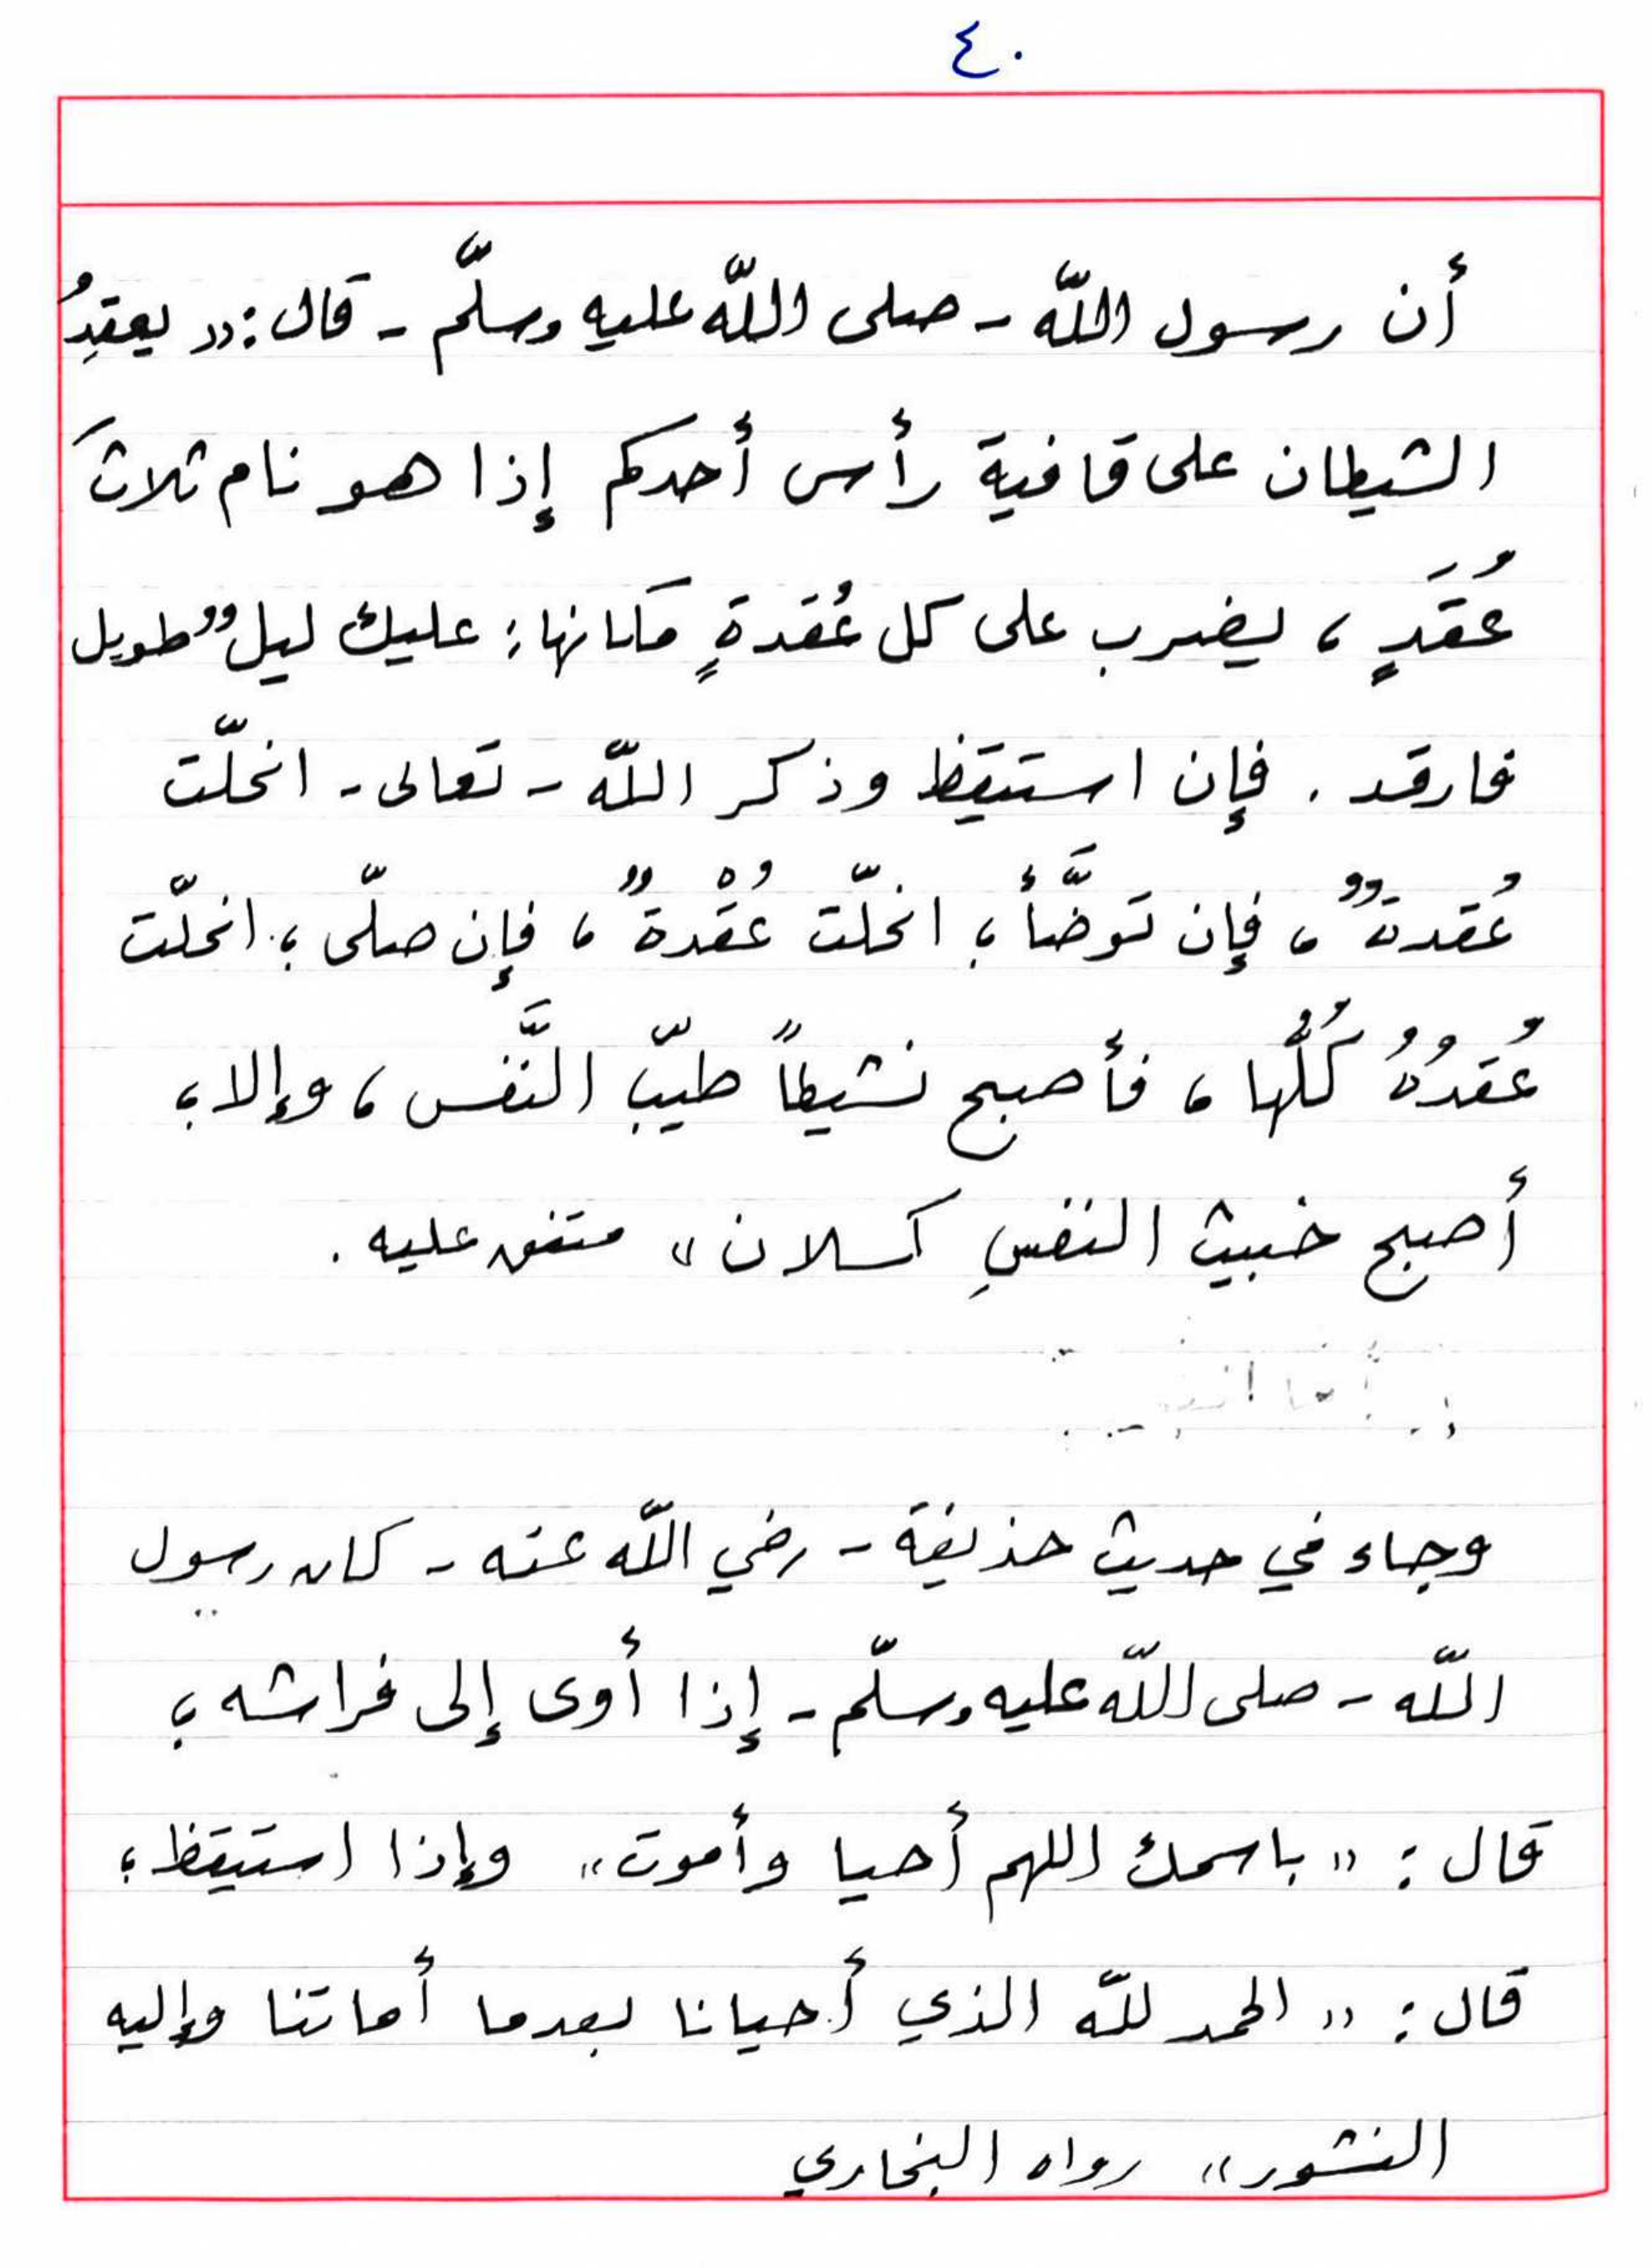 ٤٠
أن رسول اللّه - صلى اللّه عليه وسلّم - قال: « يعقِدُ
الشيطان على قافية رأس أحدكم إذا هو نام ثلاثَ
عُقَدٍ ، يضرب على كل عُقدةٍ مكانها: عليك ليلٌ طويل
فارقد . فإن استيقظ وذكر اللّه - تعالى - انحلّت
عُقدةٌ ، فإن توضَّأ ؛ انحلّت عُقْدةٌ ، فإن صلّى ؛ انحلّت
عُقدُهُ كُلُّها ، فأصبح نشيطاً طيّب النَّفس ، وإلا ؛
أصبح خبيث النفسِ كسلان » متفق عليه .
وجاء في حديث حذيفة - رضي اللّه عنه - كان رسول
اللّه - صلى اللّه عليه وسلّم - إذا أوى إلى فراشه ؛
قال : « باسمك اللهم أحيا وأموت » وإذا استيقظ ؛
قال : « الحمد للّه الذي أحيانا بعدما أماتنا وإليه
النشور » رواه البخاري